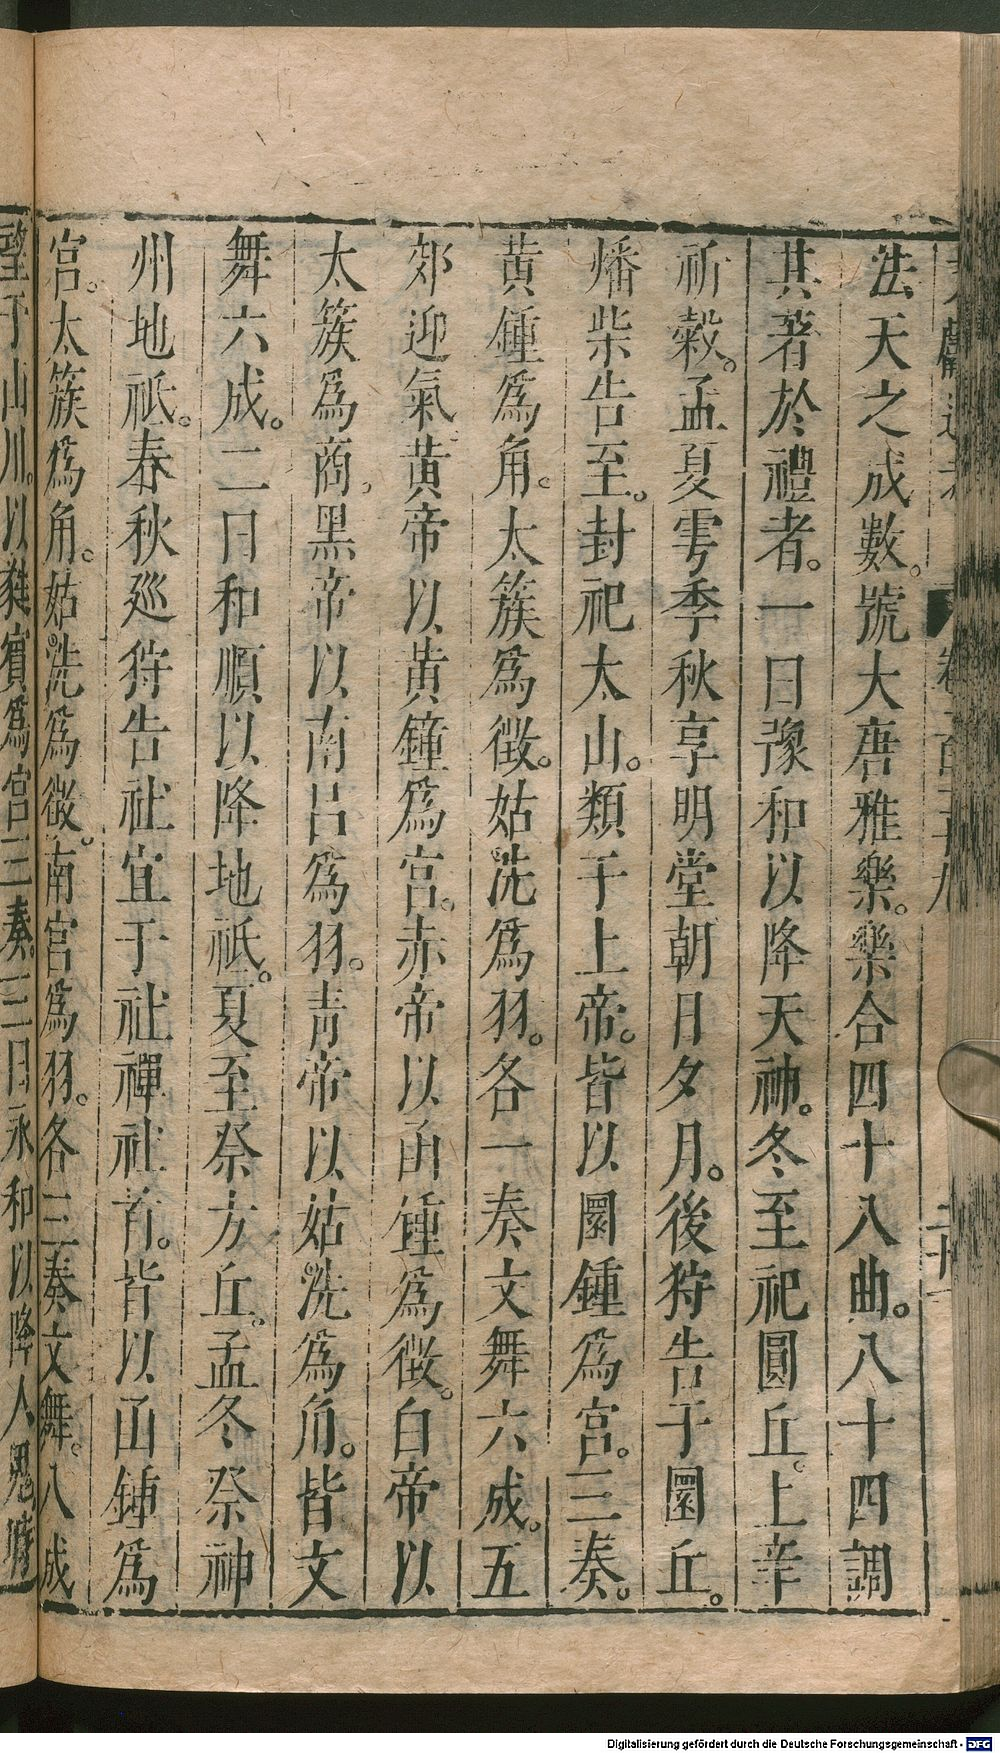 法天之成數。號大唐雅樂。樂合四十八曲。八十四調
其著於禮者。一曰豫和以降天神。冬至祀圓丘。上辛
祈穀。孟夏雩季秋享明堂朝日夕月。後狩告于圜丘。
燔柴告至。封祀太山。類于上帝。皆以圜鍾爲宮。三奏。
黄鍾爲角。太簇爲徵。姑洗爲羽。各一奏文舞六成。五
郊迎氣。黄帝以黄鐘爲宮。赤帝以函鍾爲徵。白帝以
太簇爲商。黑帝以南呂爲羽。青帝以姑洗爲角。皆文
舞六成。二曰和順以降地祇。夏至祭方丘。孟冬祭神
州地祇。春秋廵狩告社宜于社禪社首。皆以函鍾爲
宮。太簇爲角。姑洗爲徵。南宮爲羽。各三奏文舞。八成
望于山川。以蕤賓爲宮三奏。三曰永和以降人鬼
Digitalisierung gefördert durch die Deutsche Forschungsgemeinschaft - DFG